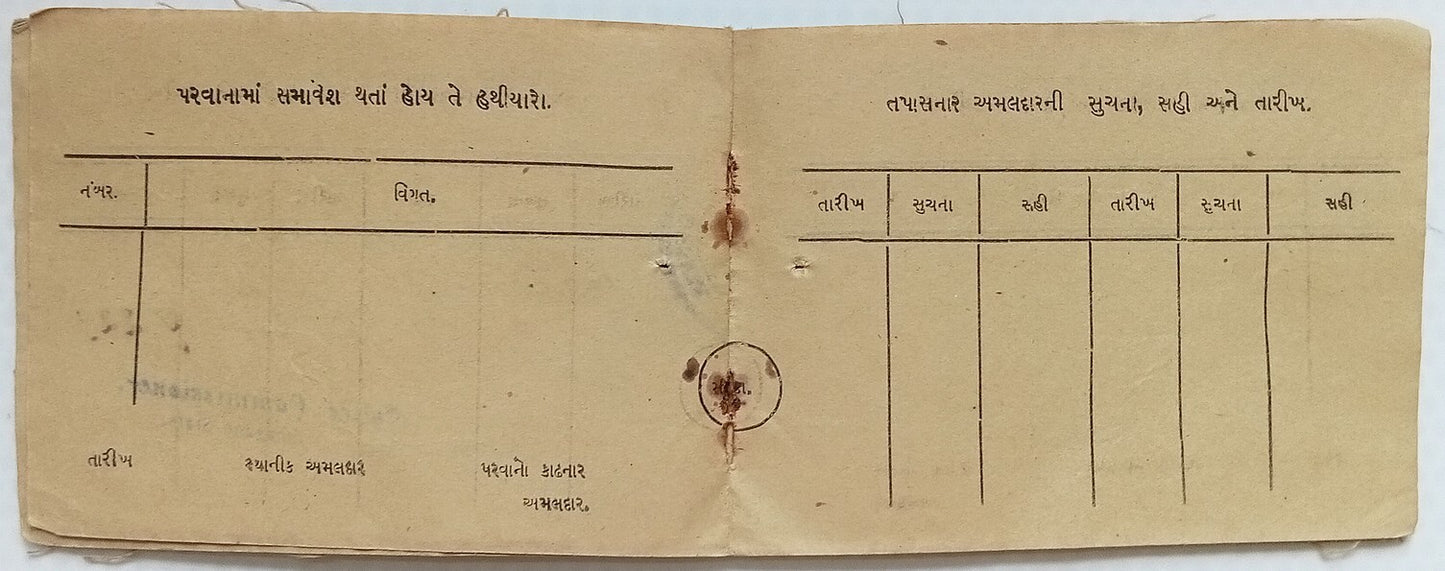 પરવાનામાં સમાવેશ થતાં હોય તે હથીયારો.
નંબર. વિગત.
તારીખ સ્થાનીક અમલદાર પરવાનો કાઢનાર
અમલદાર.
તપાસનાર અમલદારની સુચના, સહી અને તારીખ.
તારીખ સુચના સહી તારીખ સુચના સહી